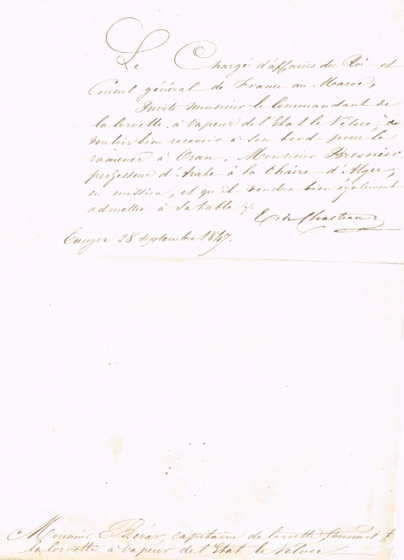 Le Chargé d'affaires du Roi et
Consul général de France au Maroc,
Invite monsieur le Commandant de
la corvette à vapeur de l'Etat le Véloce, de
vouloir bien recevoir à son bord pour le
ramener à Oran, Monsieur Bresnier
professeur d'Arabe à la Chaire d'Alger,
en mission, et qu'il voudra bien également
admettre à sa table
E. de Chasteau
28 septembre 1847.
Monsieur Bérar, capitaine de corvette Command t
la corvette à vapeur de l'Etat le Véloce